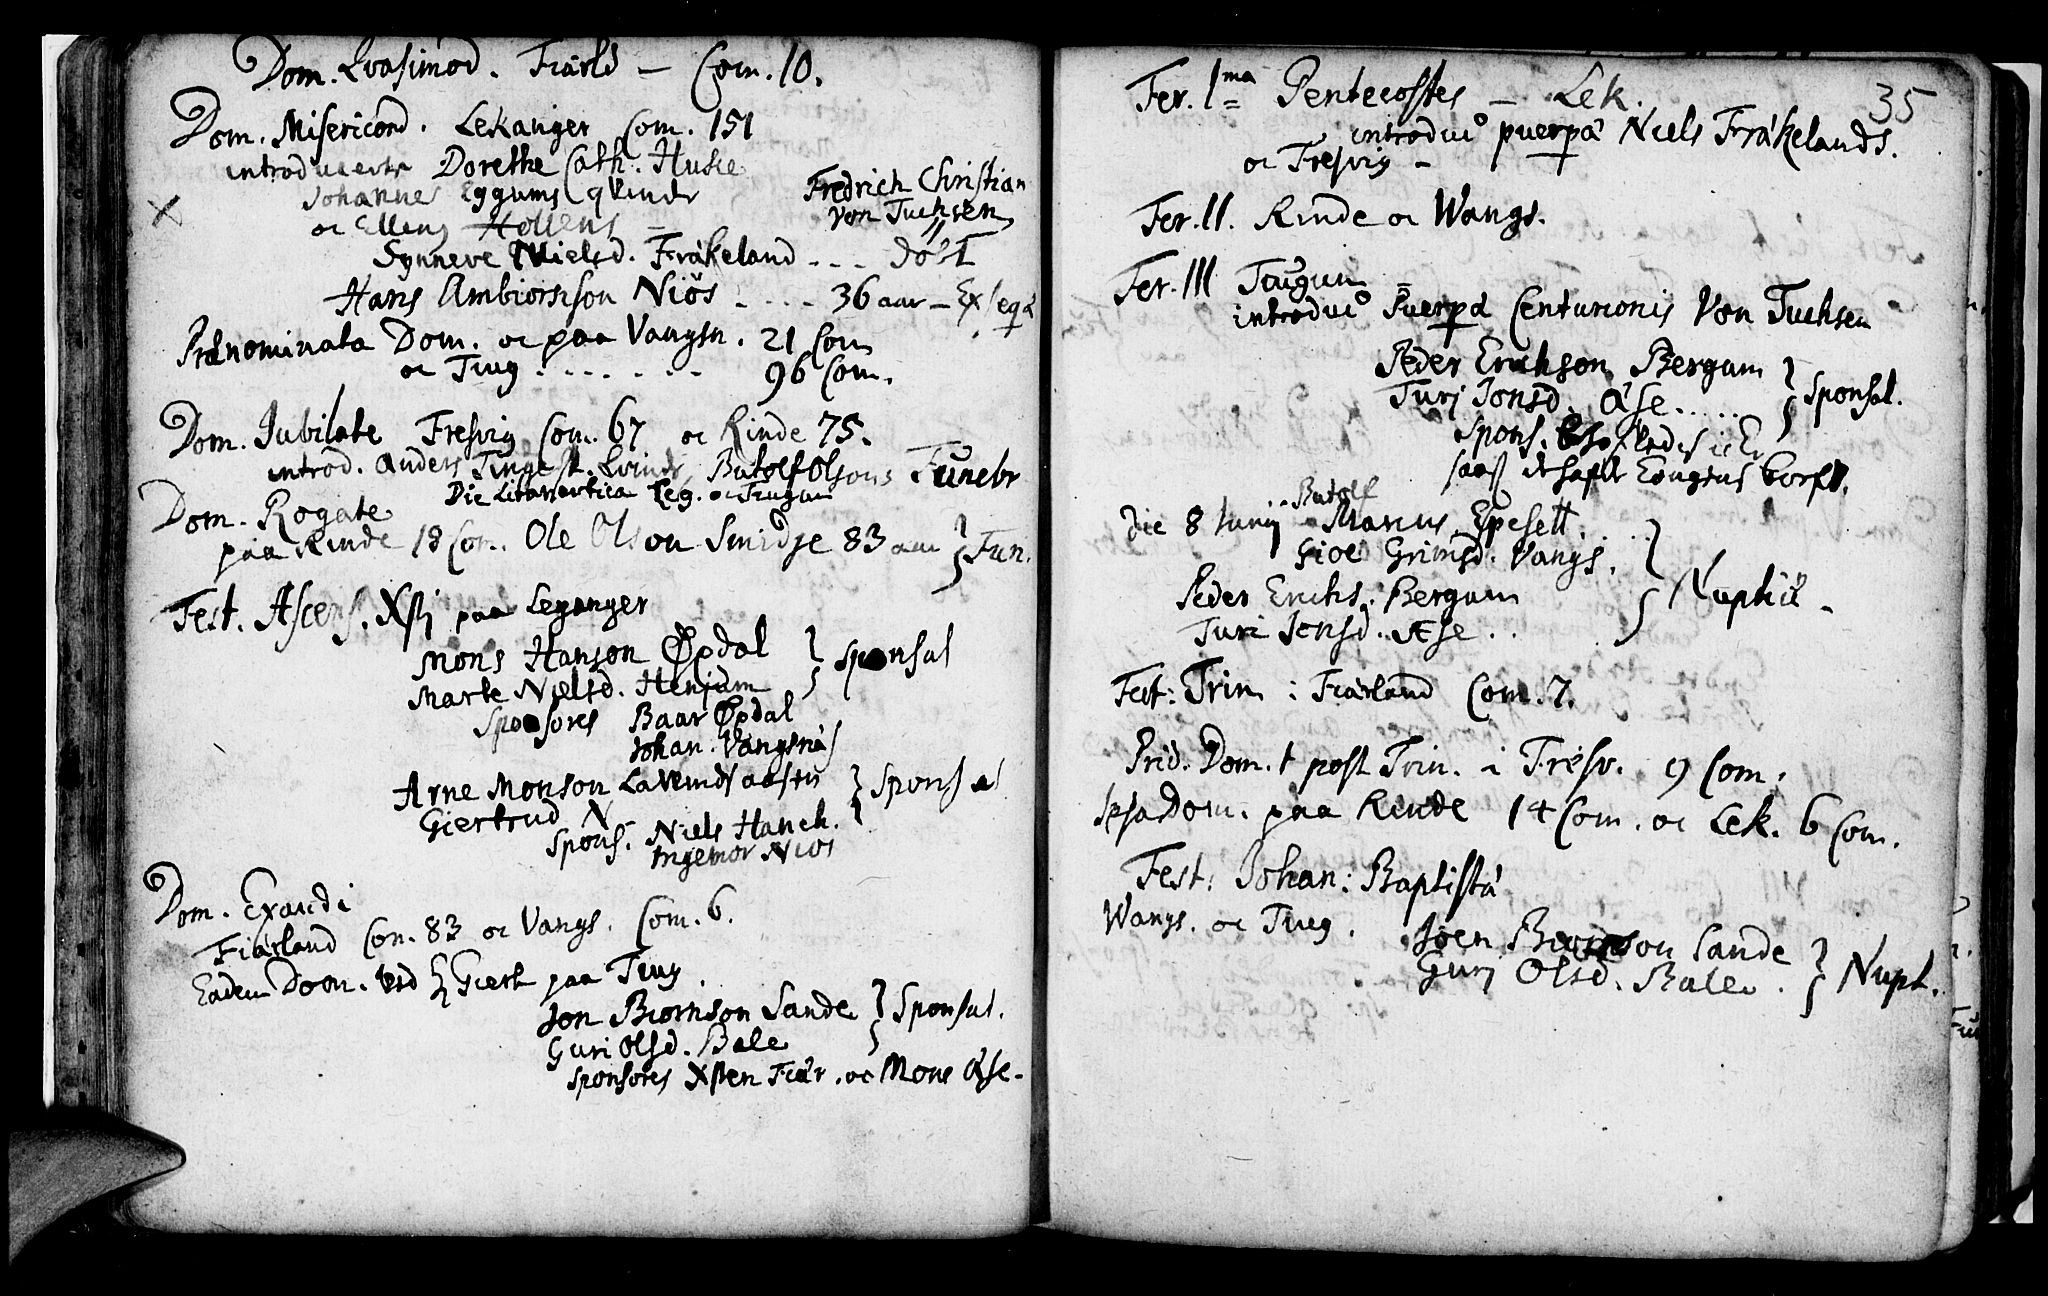 Dom. Qvasimod. Fiærld — Com. 10.
Dom. Misericord. Lekanger Com. 151
introducerte Dorethe Cath. Huse
Johannes Eggums qvinde
Fredrich Christian
von Tuchsen
oc Ellens Hollens —
Synneve Nielsd. Fräkeland - - - döbt
Hans Ambiornson Niös - - - - 36 aar — Exseqv
Prænominata Dom. oc paa Vangsn. 21 Com
oc Tiug . . . . . . 96 Com.
Dom. Jubilate Fresvig Com. 67 oc Rinde 75.
introd. Anders Qvinde, Olsons Funebr
Dom. Rogate Leg. oc Tiugum
paa Rinde 18 Com. Ole Olson Smidje 83 aar } Fun.
Fest. Ascens. Xsti paa Leganger
Mons Hanson Øpdal } sponsal
Marte Nielsd. Henjum
sponsores Baar Øpdal
Johan. Vangsnäs
Arne Monson } sponsal
Giertrud N -
spons. Niels Hanch.
Ingemor Niös
Dom. Exaudi
Fiärland Con. 83 oc Vangs. Com. 6.
Eadem Dom. paa Tiug.
Jon Biörnson Sande } Sponsal.
Guri Olsd. Bale
sponsores Xsten Fiär. oc Mons Åse -
35
Fer. 1ma Pentecostes — Lek.
introduc° puerpa Niels Fräkelands.
oc Fresvig —
Fer. II. Rinde oc Wangs.
Fer. III Tiugum
introduc° Puerpa Centurionis Von Tuchsen
Peder Erichson Bergum } sponsal.
Turj Jonsd. Åse . . . .
Spons.
Botolf
die 8 Junij Marcus Epesett . . .
Gioe Grimsd. Vangs. } Nuptiæ -
Peder Erichs: Bergum
Turi Jonsd. Æse . .
Fest: Trin: Fiärland Com. 7.
Prid. Dom. 1 post Trin. i Fresv. 9 Com.
Ipsa Dom. paa Rinde 14 Com. oc Lek. 6 Com.
Fest: Johan: Baptistä
Wangs. oc Tiug.
Joen Biörnson Sande } Nupt.
Gurj Olsd. Bale .